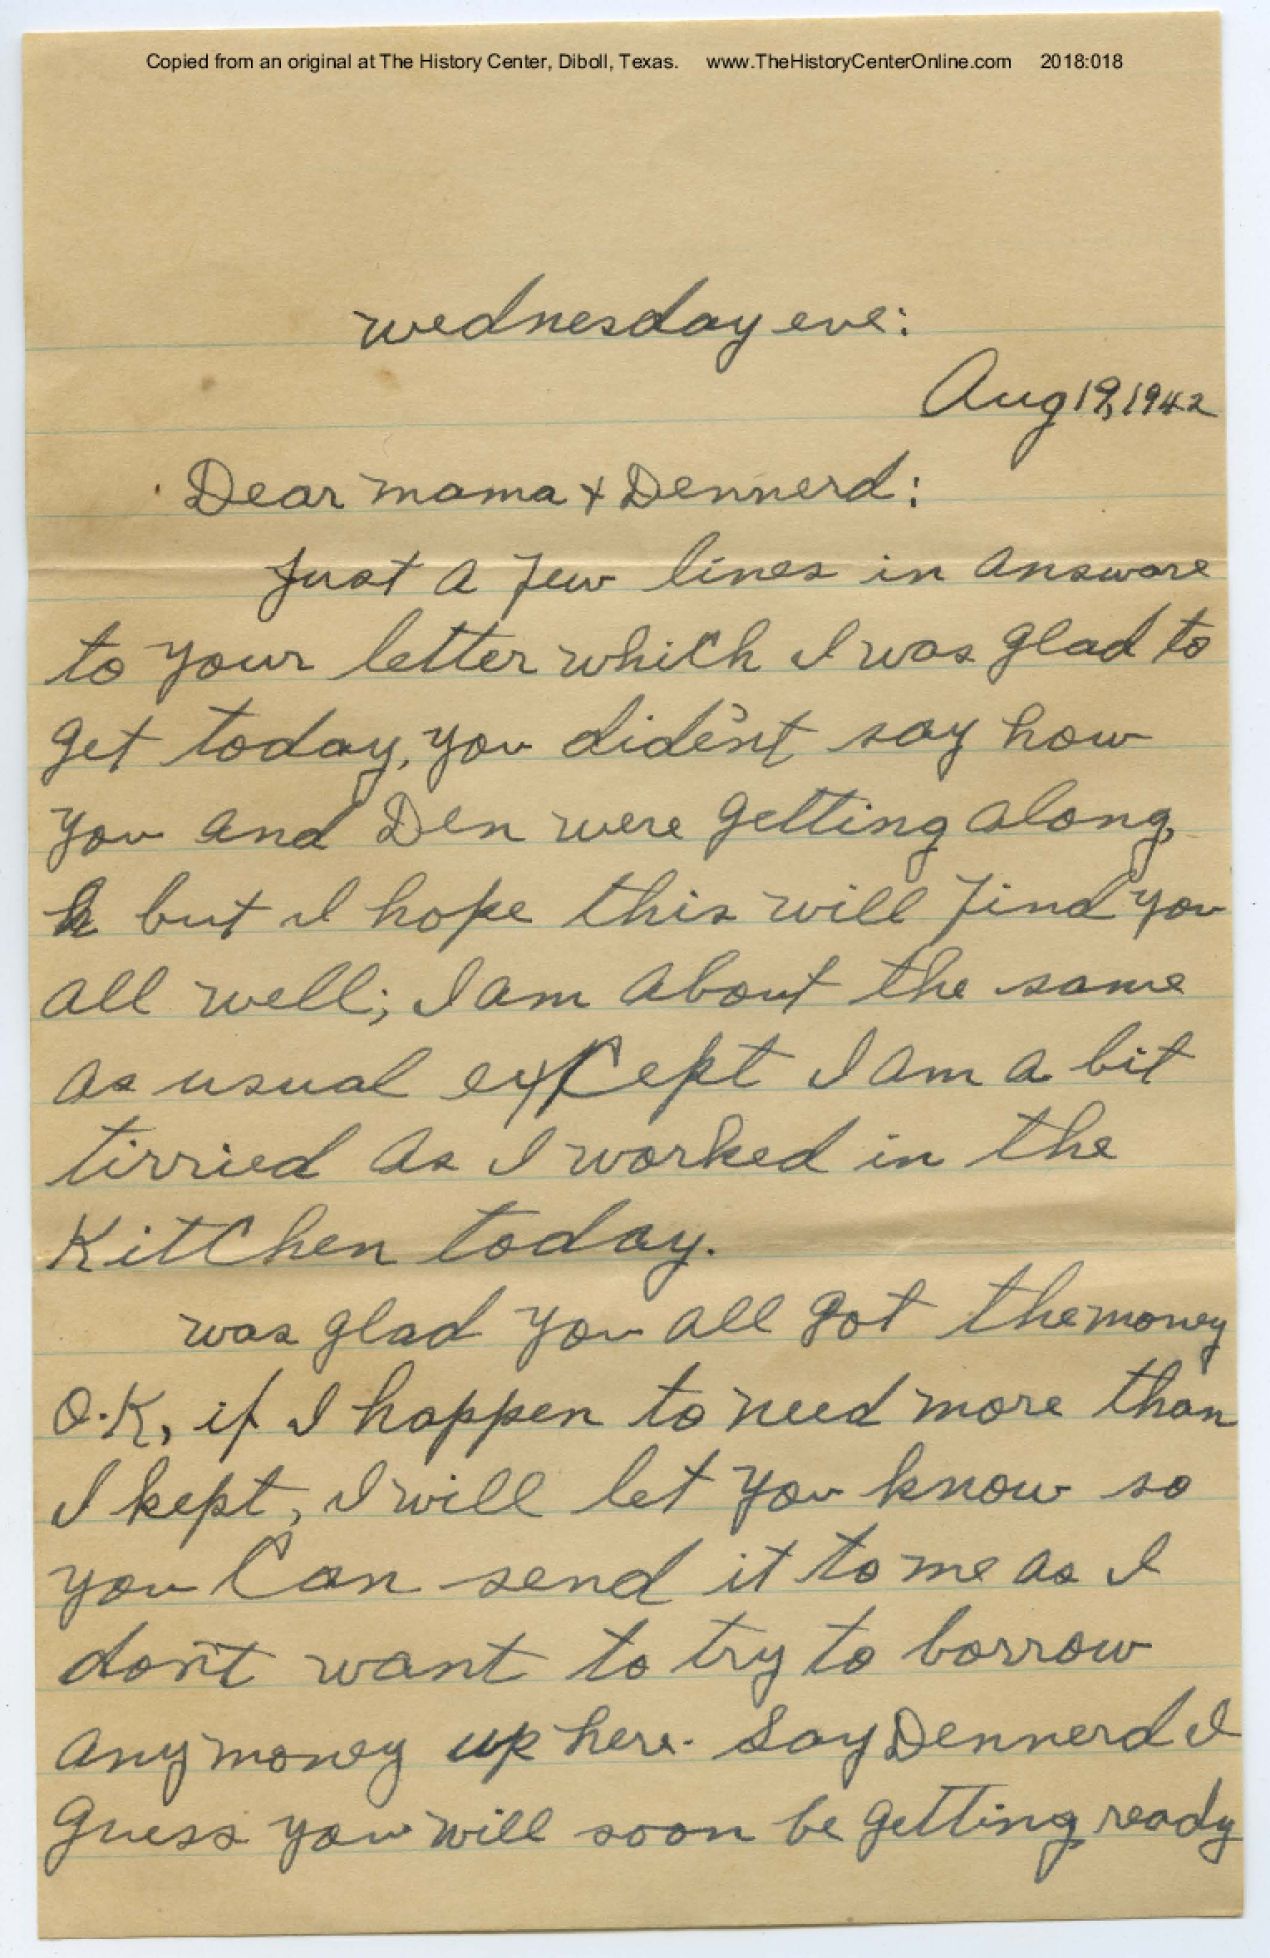 Copied from an original at The History Center, Diboll, Texas. www.TheHistoryCenterOnline.com 2018:018
Wednesday eve:
Aug 19, 1942
Dear mama & Dennerd:
Just a few lines in answare
to your letter which I was glad to
get today, you dide'nt say how
you and Den were getting along,
but I hope this will find you
all well; I am about the same
as usual except I am a bit
tirried as I worked in the
Kitchen today.
was glad you all got the money
O.K, if I happen to need more than
I kept, I will let you know so
you Can send it to me as I
don't want to try to borrow
any money up here. Say Dennerd I
guess you will soon be getting ready